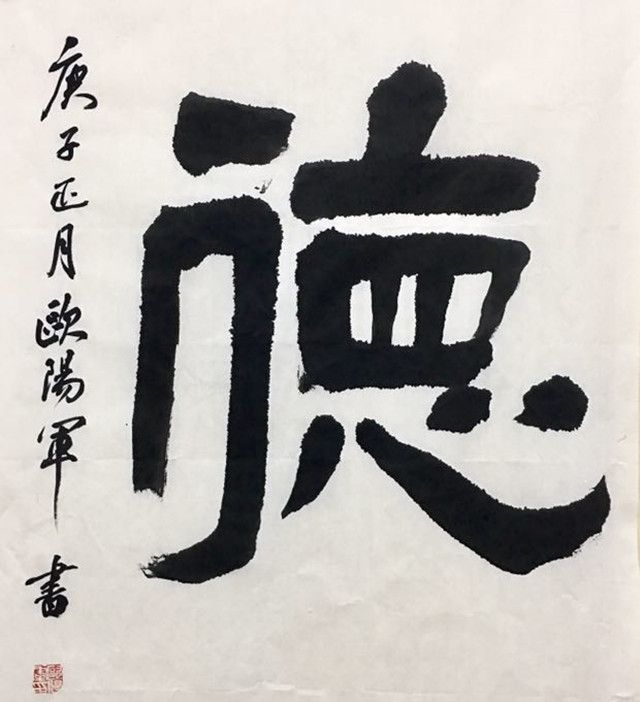 德
庚子正月歐陽軍 書